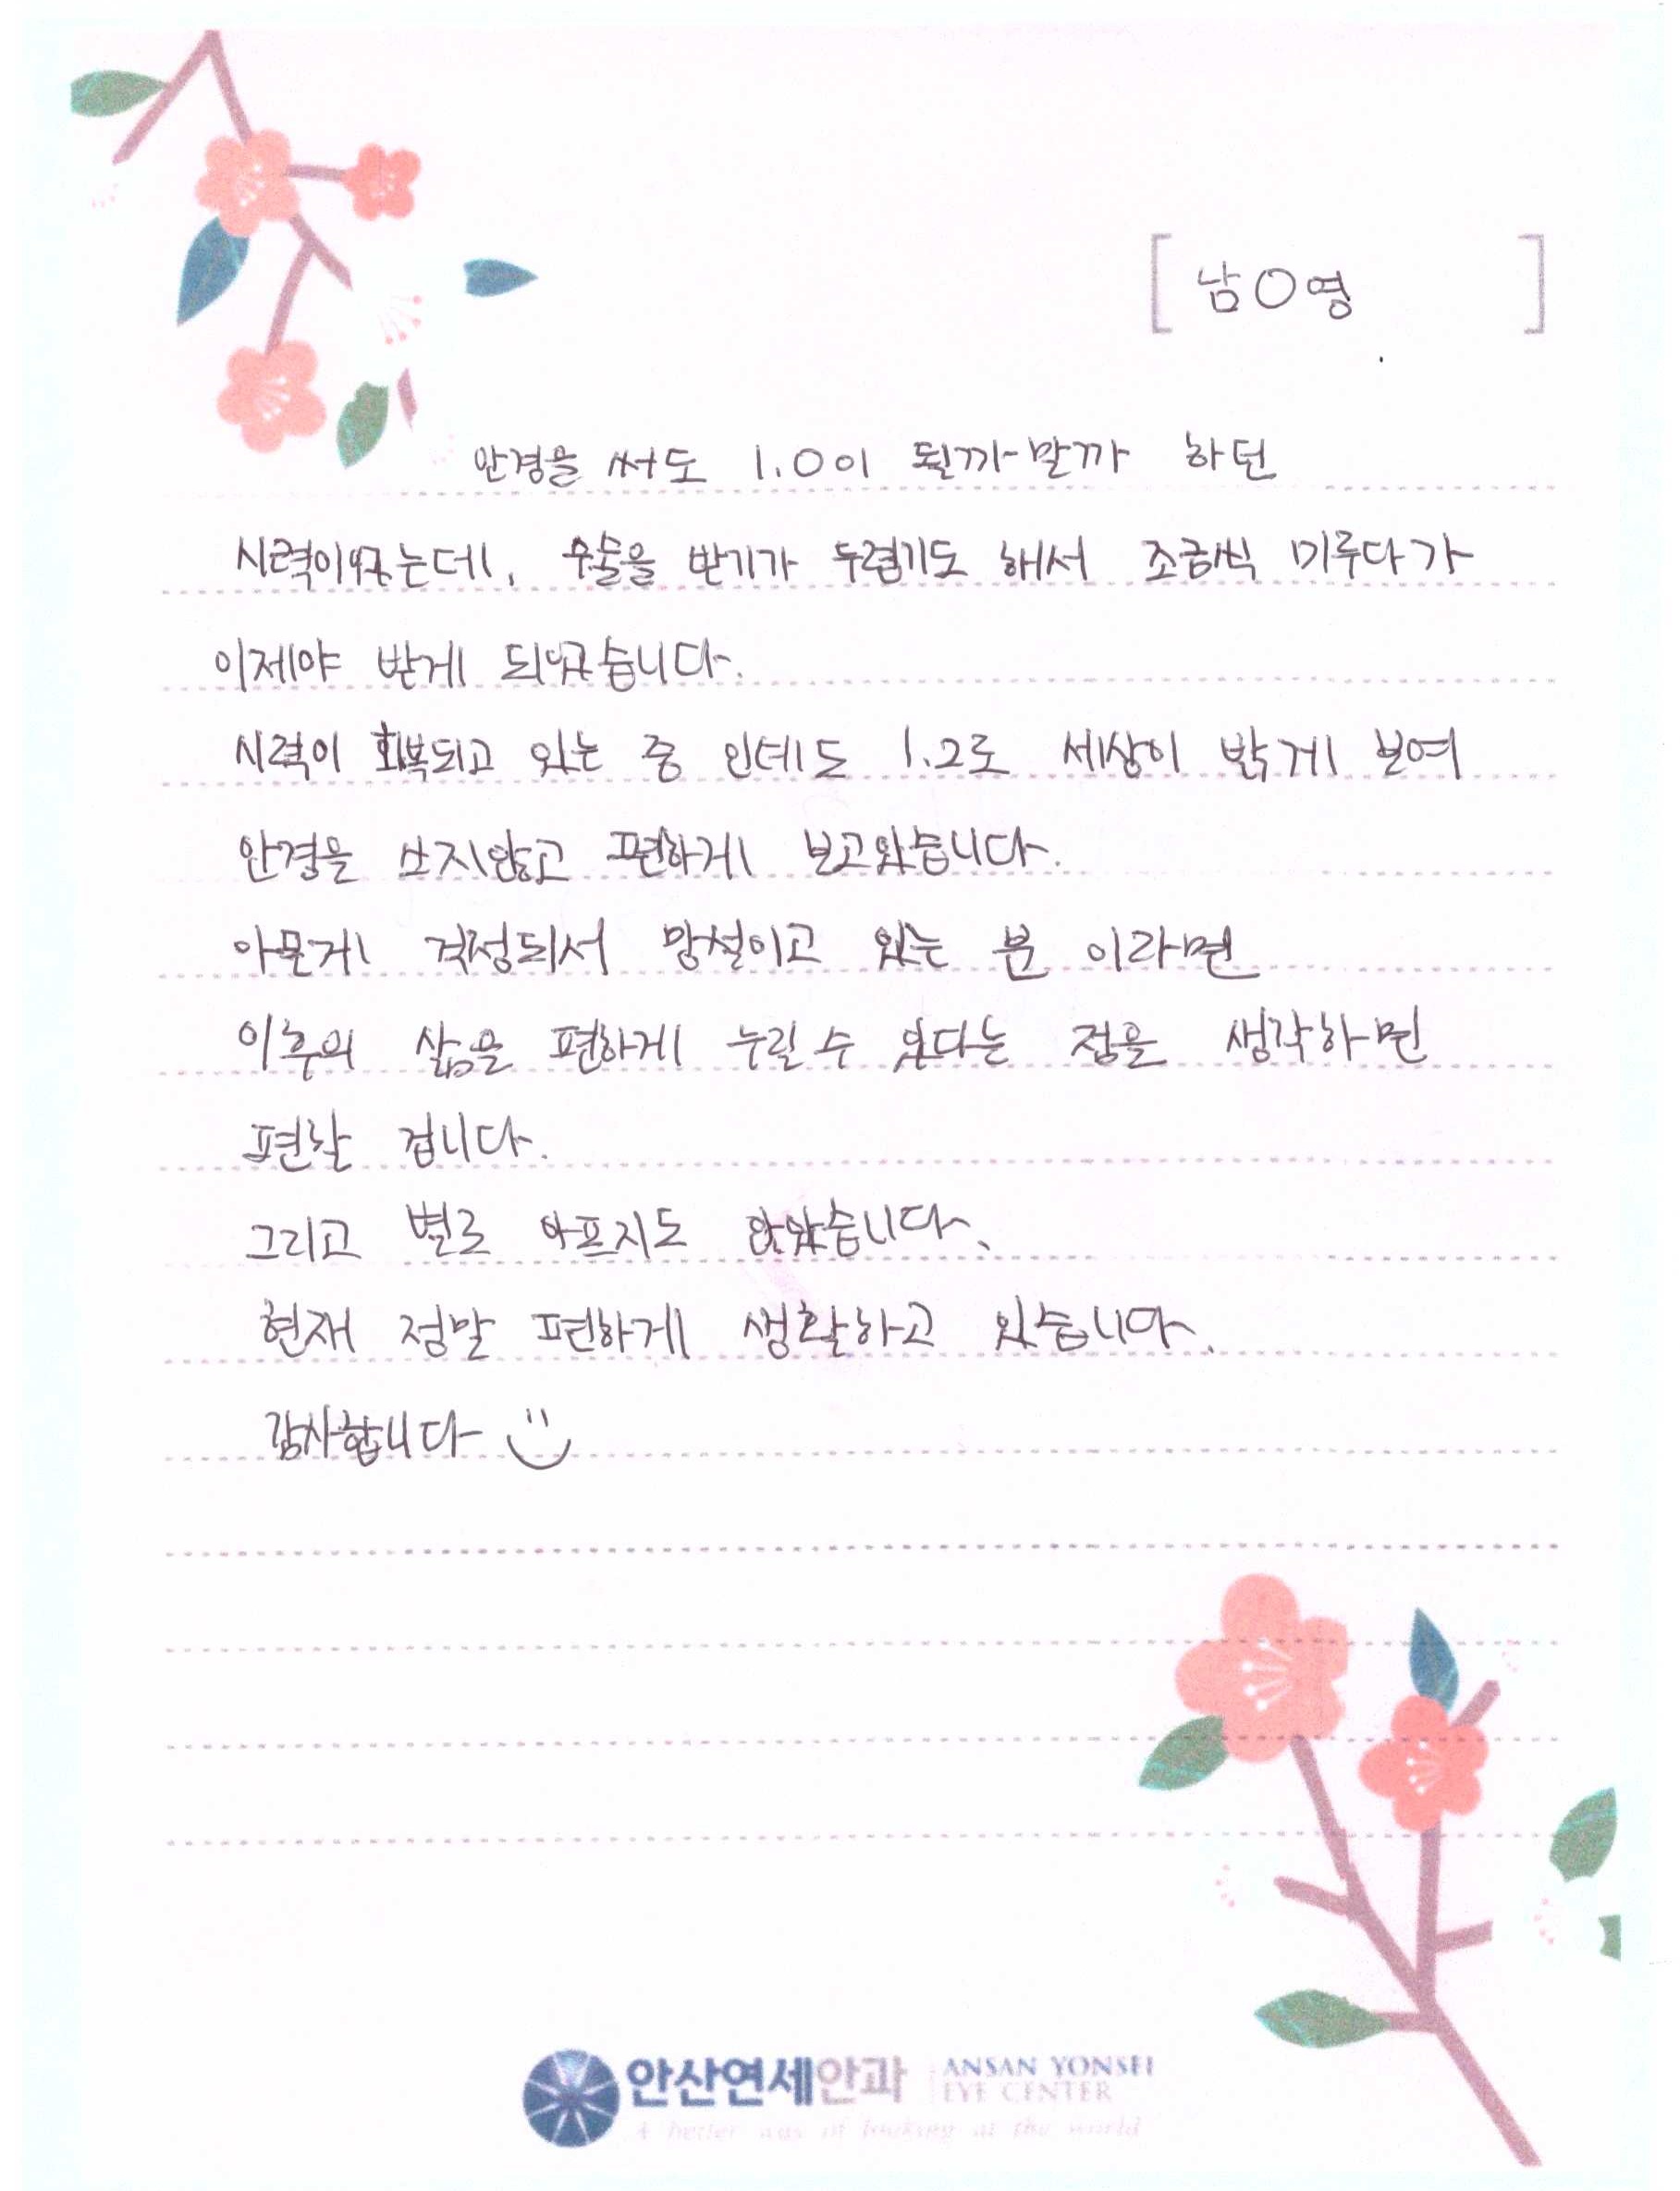 [ 남O영 ]
안경을 써도 1.0이 될까말까 하던
시력이였는데, 수술을 받기가 두렵기도 해서 조금씩 미루다가
이제야 받게 되었습니다.
시력이 회복되고 있는 중 인데도 1.2로 세상이 밝게 보여
안경을 쓰지않고 편하게 보고있습니다.
아픈게 걱정되서 망설이고 있는 분 이라면
이후의 삶을 편하게 누릴 수 있다는 점을 생각하면
편할 겁니다.
그리고 별로 아프지도 않았습니다.
현재 정말 편하게 생활하고 있습니다.
감사합니다
안산연세안과 ANSAN YONSEI
EYE CENTER
A better way of looking at the world